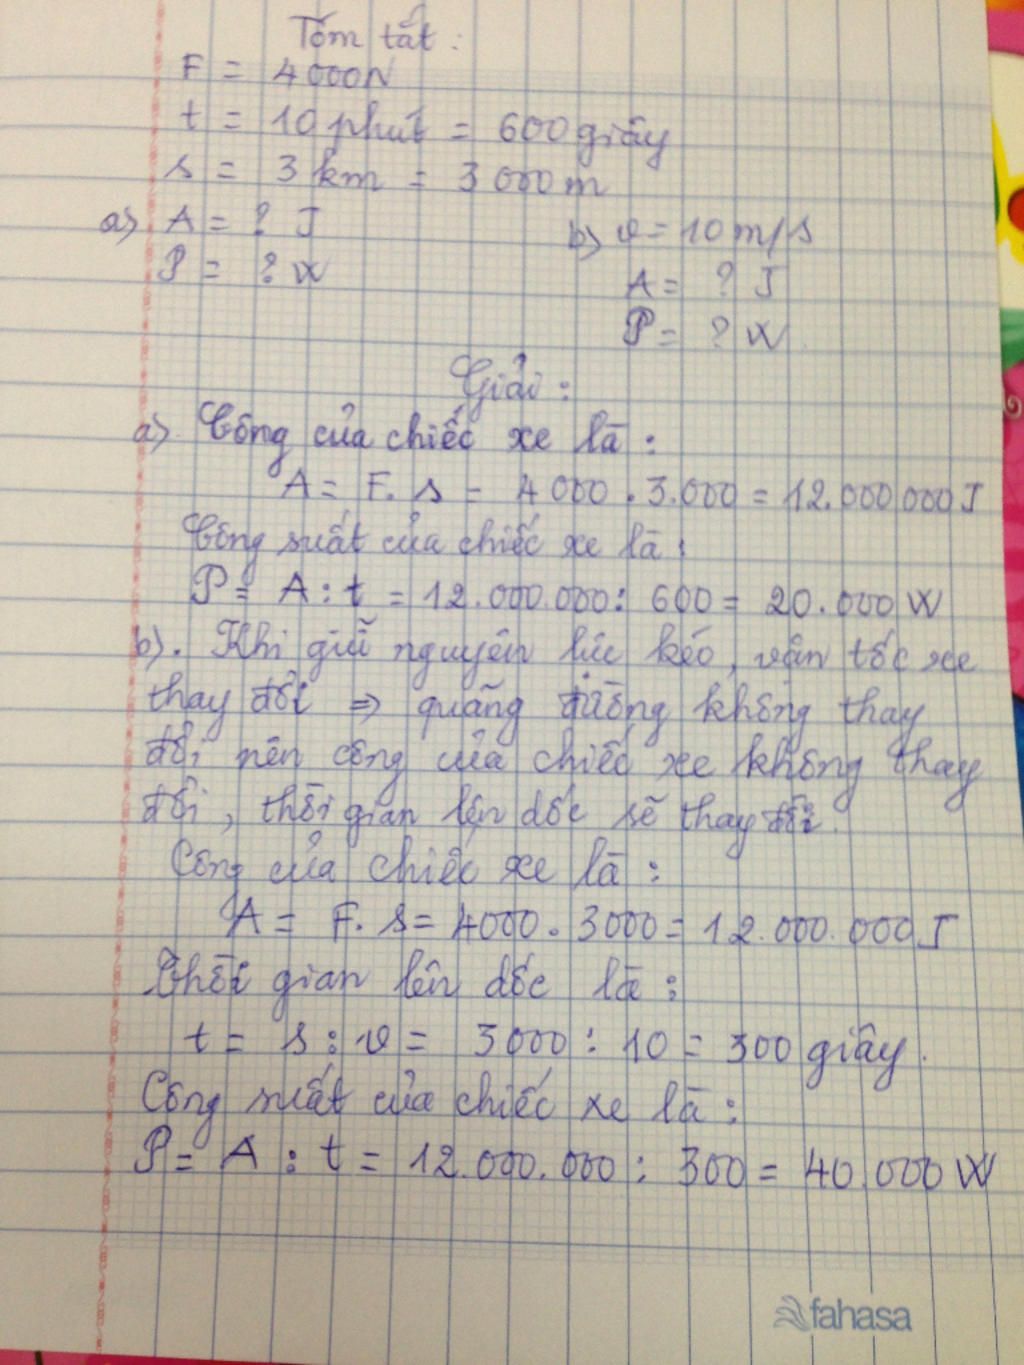 Tóm tắt:
F = 4000N
t = 10 phút = 600 giây
s = 3 km = 3000 m
a) A = ? J
P = ? W
b) v = 10 m/s
A = ? J
P = ? W.
Giải:
a). Công của chiếc xe là:
A = F. s = 4000 . 3.000 = 12.000 000 J
Công suất của chiếc xe là:
P = A : t = 12.000.000 : 600 = 20.000 W
b). Khi giữ nguyên lực kéo, vận tốc xe
thay đổi => quãng đường không thay
đổi nên công của chiếc xe không thay
đổi, thời gian lên dốc sẽ thay đổi.
Công của chiếc xe là:
A = F. s = 4000 . 3000 = 12.000.000 J
Thời gian lên dốc là:
t = s : v = 3000 : 10 = 300 giây.
Công suất của chiếc xe là:
P = A : t = 12.000.000 : 300 = 40.000 W
fahasa